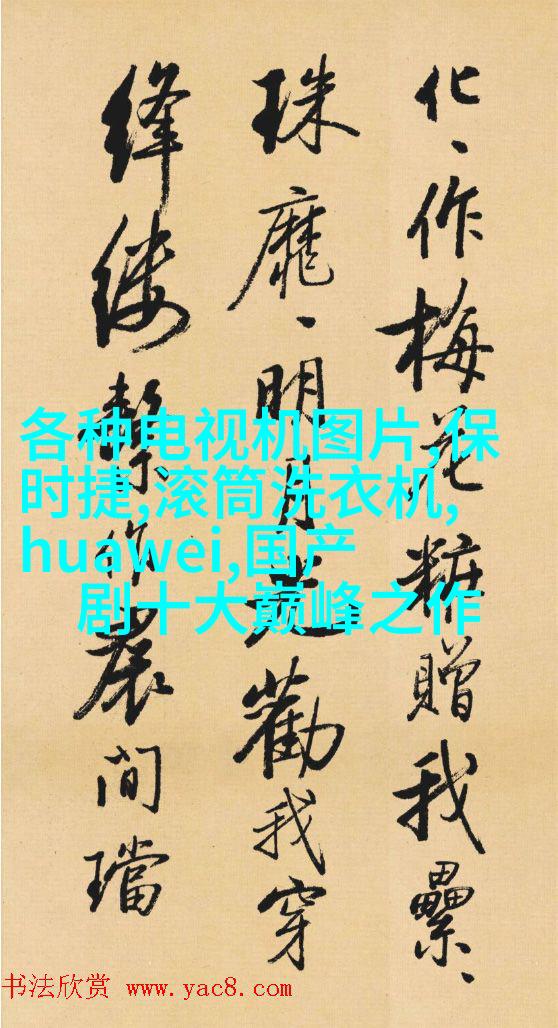 化、作梅花糚贈我纍、
珠靡、明月光勸我穿
絳縷繫作裠間璫
各种电视机图片,保
时捷,滚筒洗衣机,
huawei,国产
剧十大巅峰之作
书法欣赏 www.yac8.com